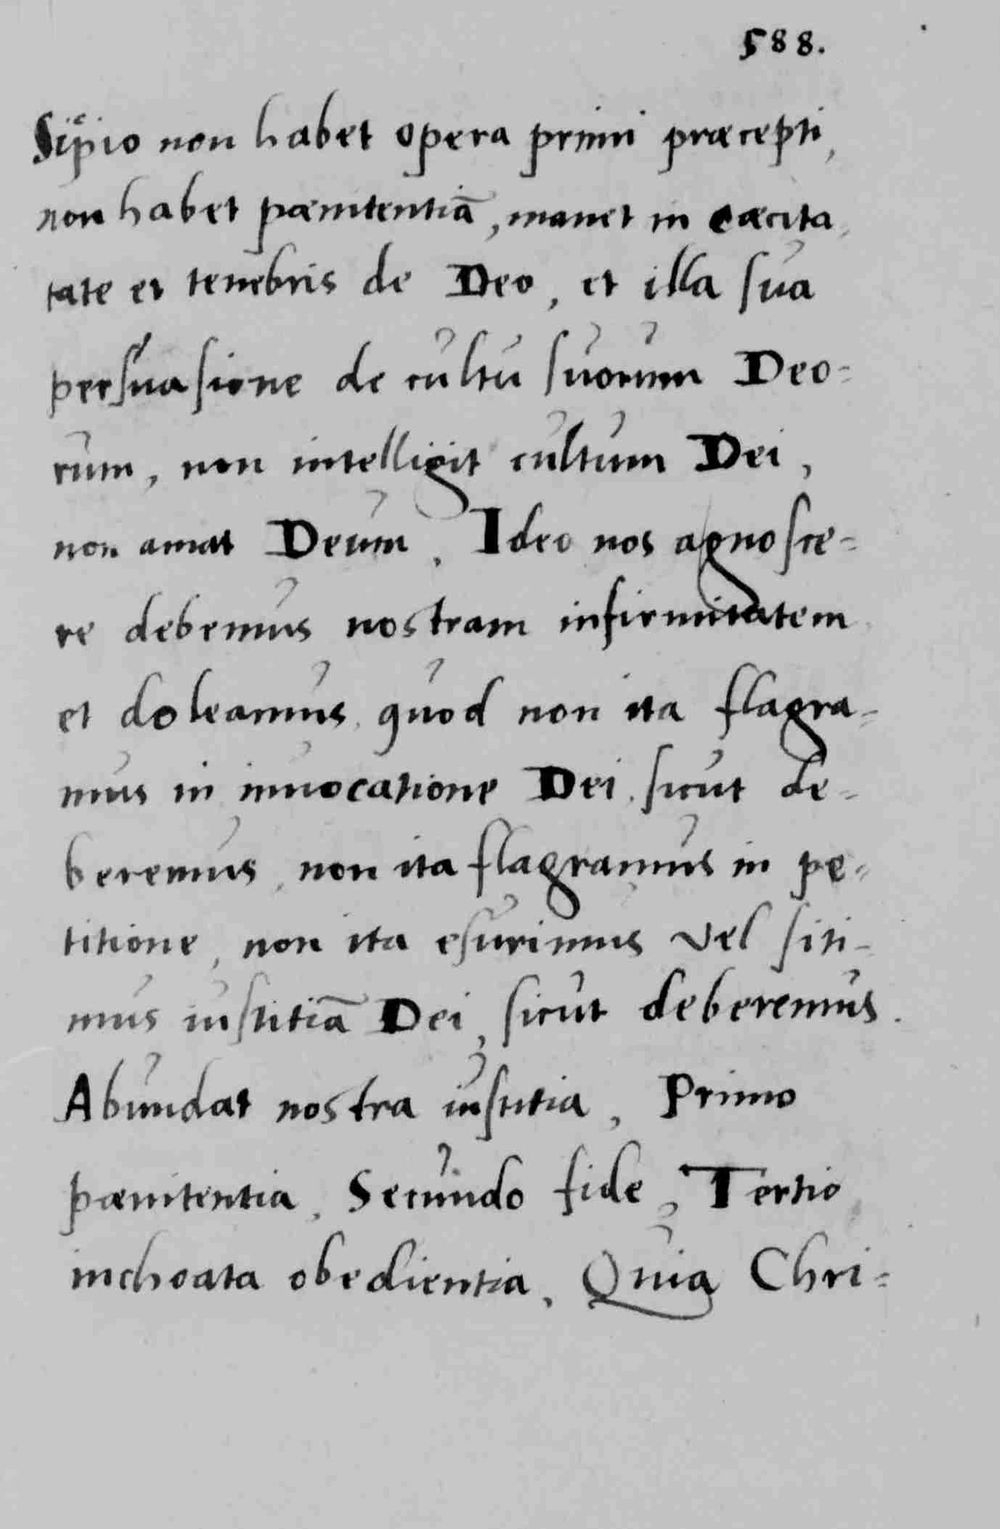 588.
Scipio non habet opera primi præcepti,
non habet pænitentiā, manet in cæcita,
tate et tenebris de Deo, et illa sua
persuasione de cultu suorum Deo=
rum, non intelligit cultum Dei,
non amat Deum, Ideo nos agnosce=
re debemus nostram infirmitatem
et doleamus, quod non ita flagra=
mus in inuocatione Dei, sicut de=
beremus, non ita flagramus in pe=
titione, non ita esurimus vel siti=
mus iustitiā Dei, sicut deberemus.
Abundat nostra iustitia, Primo
pænitentia, Secundo fide, Tertio
inchoata obedientia, Quia Chri=